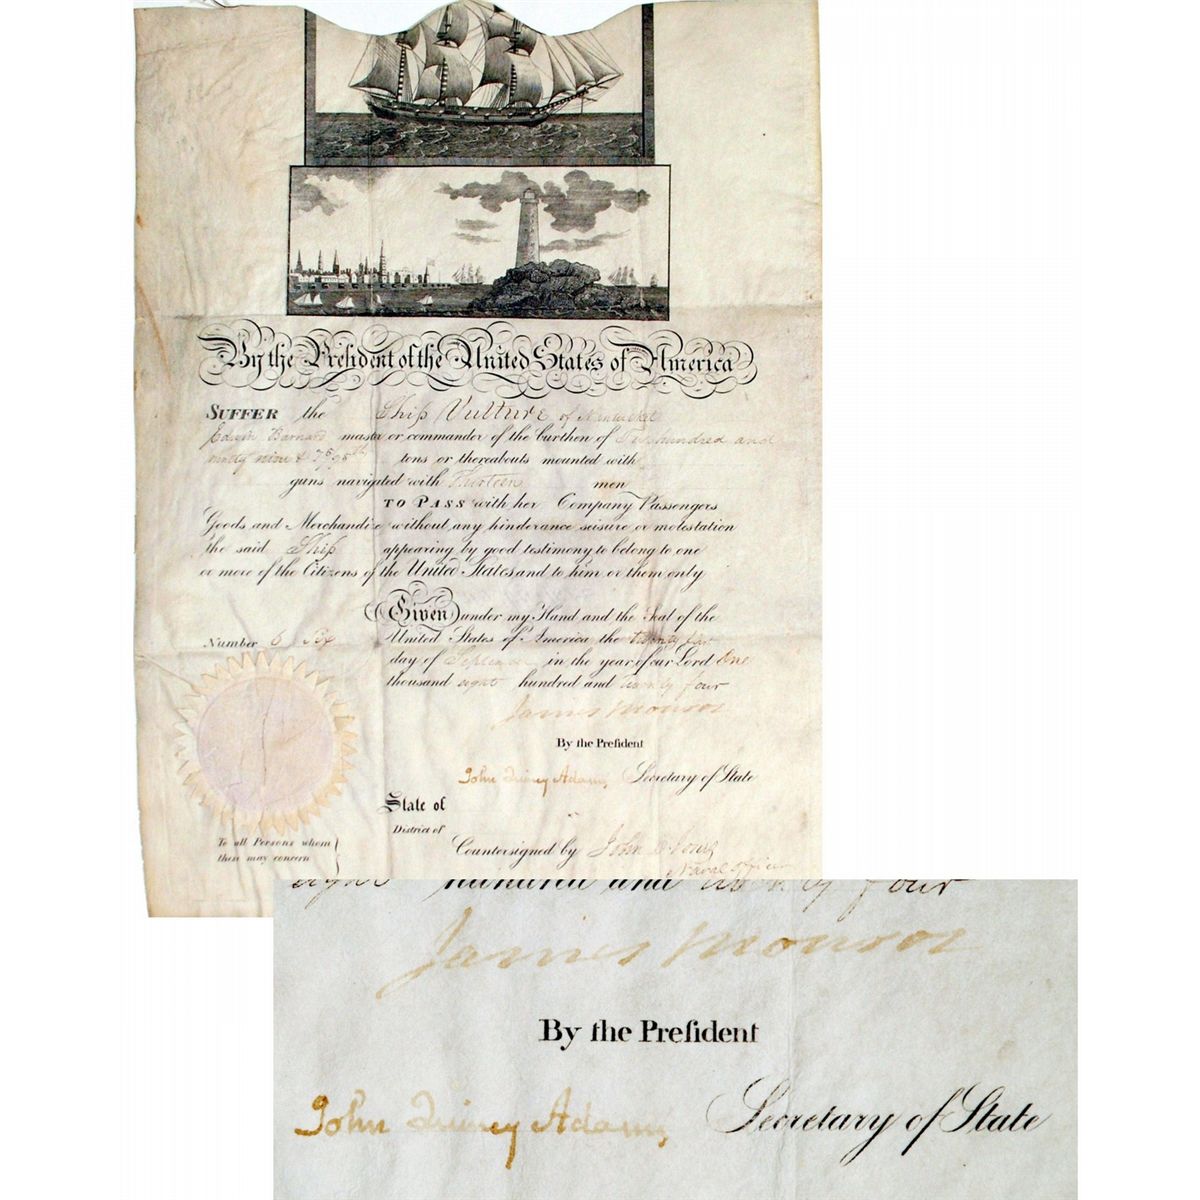 By the President of the United States of America
SUFFER the Ship Vulture of Nantucket
Edwin Barnard master or commander of the burthen of hundred and
ninety nine & 75/95th tons or thereabouts mounted with
guns navigated with Thirteen men
TO PASS with her Company Passengers
Goods and Merchandize without any hinderance seisure or molestation
the said Ship appearing by good testimony to belong to one
or more of the Citizens of the United States and to him or them only
Given under my Hand and the Seal of the
Number 6 Six
United States of America the twenty
day of September in the year of our Lord One
thousand eight hundred and twenty four
James Monroe
By the Preſident
John Quincy Adams Secretary of State
State of
District of
Countersigned by John
Naval Officer
To all Persons whom
these may concern
eight hundred and twenty four
James Monroe
By the Preſident
John Quincy Adams Secretary of State